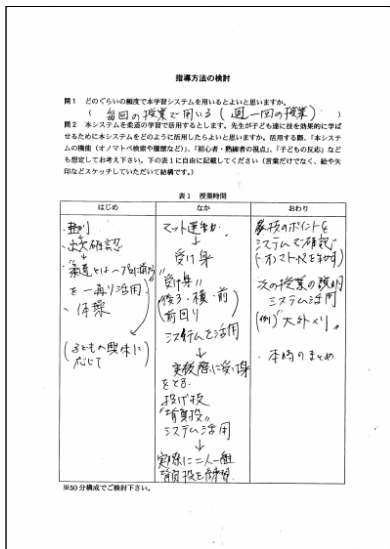 指導方法の検討
問1 どのぐらいの頻度で本学習システムを用いるとよいと思いますか。
( 毎回の授業で用いる (週一回の授業) )
問2 本システムを柔道の学習で活用するとします。先生が子ども達に技を効果的に学ば
せるために本システムをどのように活用したらよいと思いますか。活用する際、「本システ
ムの機能(オノマトペ検索や履歴など)」、「初心者・熟練者の視点」、「子どもの反応」など
も想定してお考え下さい。下の表1に自由に記載してください(言葉だけでなく、絵や矢
印などスケッチしていただいて結構です。)
表1 授業時間
はじめ
・整列
・出欠確認
・柔道とは
を一再り活用
・体操
(子どもの興味に
応じて
なか
マット運動
↓
受け身
↓
"受け身"
後ろ・横・前
前回り
システムを活用
↓
実際に受け身
をとる.
投げ技
"背負投"
システム活用
↓
実際に二人一組
背負投を練習.
おわり
技のポイントを
システムで確認
(・オノマトペを
次の授業の説明
システム活用
(例)"大外刈り"
・本時のまとめ
※50分構成でご検討下さい。